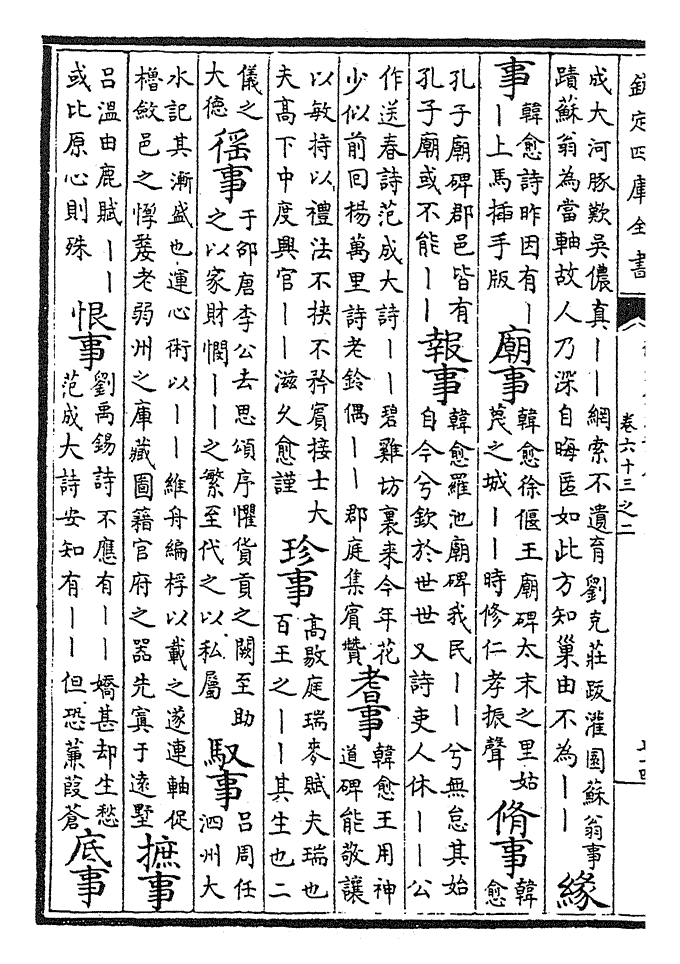 欽定四庫全書
卷六十三之二
成大河豚歎吳儂真丨丨網索不遺育劉克莊跋灌園蘇翁事
蹟蘇翁為當軸故人乃深自晦匿如此方知巢由不為丨丨緣
事韓愈詩昨因有丨
丨上馬插手版
廟事韓愈徐偃王廟碑太末之里姑
蔑之城丨丨時修仁孝振聲
脩事韓
愈
孔子廟碑郡邑皆有
孔子廟或不能丨丨
報事韓愈羅池廟碑我民丨丨兮無怠其始
自今兮欽於世世又詩吏人休丨丨公
作送春詩范成大詩丨丨碧雞坊裏来今年花
少似前回楊萬里詩老鈴偶丨丨郡庭集賓贊
耆事韓愈王用神
道碑能敬讓
以敏持以禮法不挾不矜賓接士大
夫高下中度興官丨丨滋久愈謹
珍事高敭庭瑞麥賦夫瑞也
百王之丨丨其生也二
儀之
大德
徭事于邵唐李公去思頌序懼貨貢之闕至助
之以家財憫丨丨之繁至代之以私屬
馭事呂周任
泗州大
水記其漸盛也運心術以丨丨維舟編桴以載之遂連軸促
櫓斂邑之惸嫠老弱州之庫藏圖籍官府之器先寘于遠墅
摭事
呂溫由鹿賦丨丨
或比原心則殊
恨事劉禹錫詩不應有丨丨嬌甚却生愁
范成大詩安知有丨丨但恐蒹葭蒼
底事